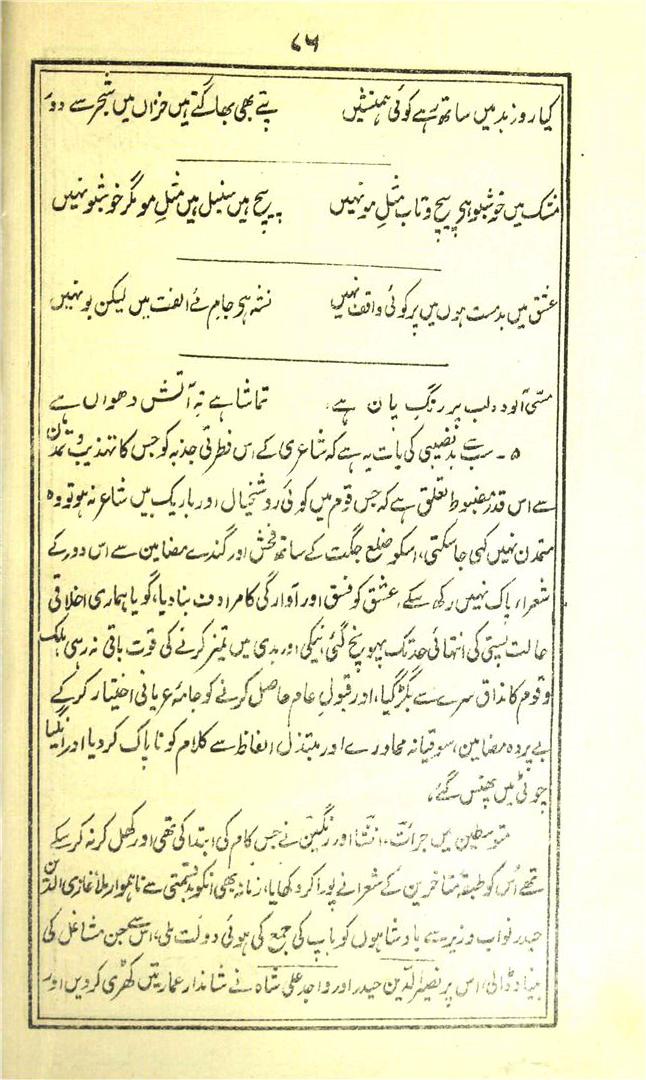 ۸۵
کیا روز بد میں ساتھ رہے کوئی ہمنشیں پتے بھی بھاگتے ہیں خزاں میں شجر سے دور
مشک میں خوشبو ہی پیچ و تاب مثلِ مو نہیں پیچ ہیں سنبل ہیں مثلِ مو مگر خوشبو نہیں
عشق میں بدمست ہوں میں پر کوئی واقف نہیں نشہ ہی جامِ مئے الفت میں لیکن بو نہیں
مسّی آلودہ لب پر رنگِ پان ہے، تماشا ہے تہِ آتش دھواں ہے
۵۔ سب سے بدنصیبی کی بات یہ ہے کہ شاعری کے اس فطرتی جذبہ کو جس کا تہذیب و تمدن
سے اس قدر مضبوط تعلق ہے کہ جس قوم میں کوئی روشنخیال اور باریک بیں شاعر نہ ہو تو وہ
متمدن نہیں کہی جا سکتی، اسکو ضلع جگت کے ساتھ فحش اور گندے مضامین سے اس دور کے
شعراء پاک نہیں رکھ سکے، عشق کو فسق اور آوارگی کا مرادف بنا دیا، گویا ہماری اخلاقی
حالت پستی کی انتہائی حد تک پہونچ گئی، نیکی اور بدی میں تمیز کرنے کی قوت باقی نہ رہی، ملک
و قوم کا مذاق سرے سے بگڑ گیا، اور قبولِ عام حاصل کرنے کو جامۂ عریانی اختیار کر کے
بے پردہ مضامین، سوقیانہ محاورے اور مبتذل الفاظ سے کلام کو ناپاک کر دیا اور انگیا
چوٹی میں پھنس گئے،
متوسطین میں جرات، انشا اور رنگین نے جس کام کی ابتدا کی تھی اور کھل کر نہ کر سکے
تھے اُس کو طبقۂ متاخرین کے شعرا نے پورا کر دکھایا، زمانہ بھی انکو بدقسمتی سے ناہموار ملا غازی الدین
حیدر نواب وزیر سے بادشاہوں کو باپ کی جمع کی ہوئی دولت ملی، اس سے جن مشاغل کی
بنیاد ڈالی، اس پر نصیر الدین حیدر اور واجد علی شاہ نے شاندار عمارتیں کھڑی کر دیں اور